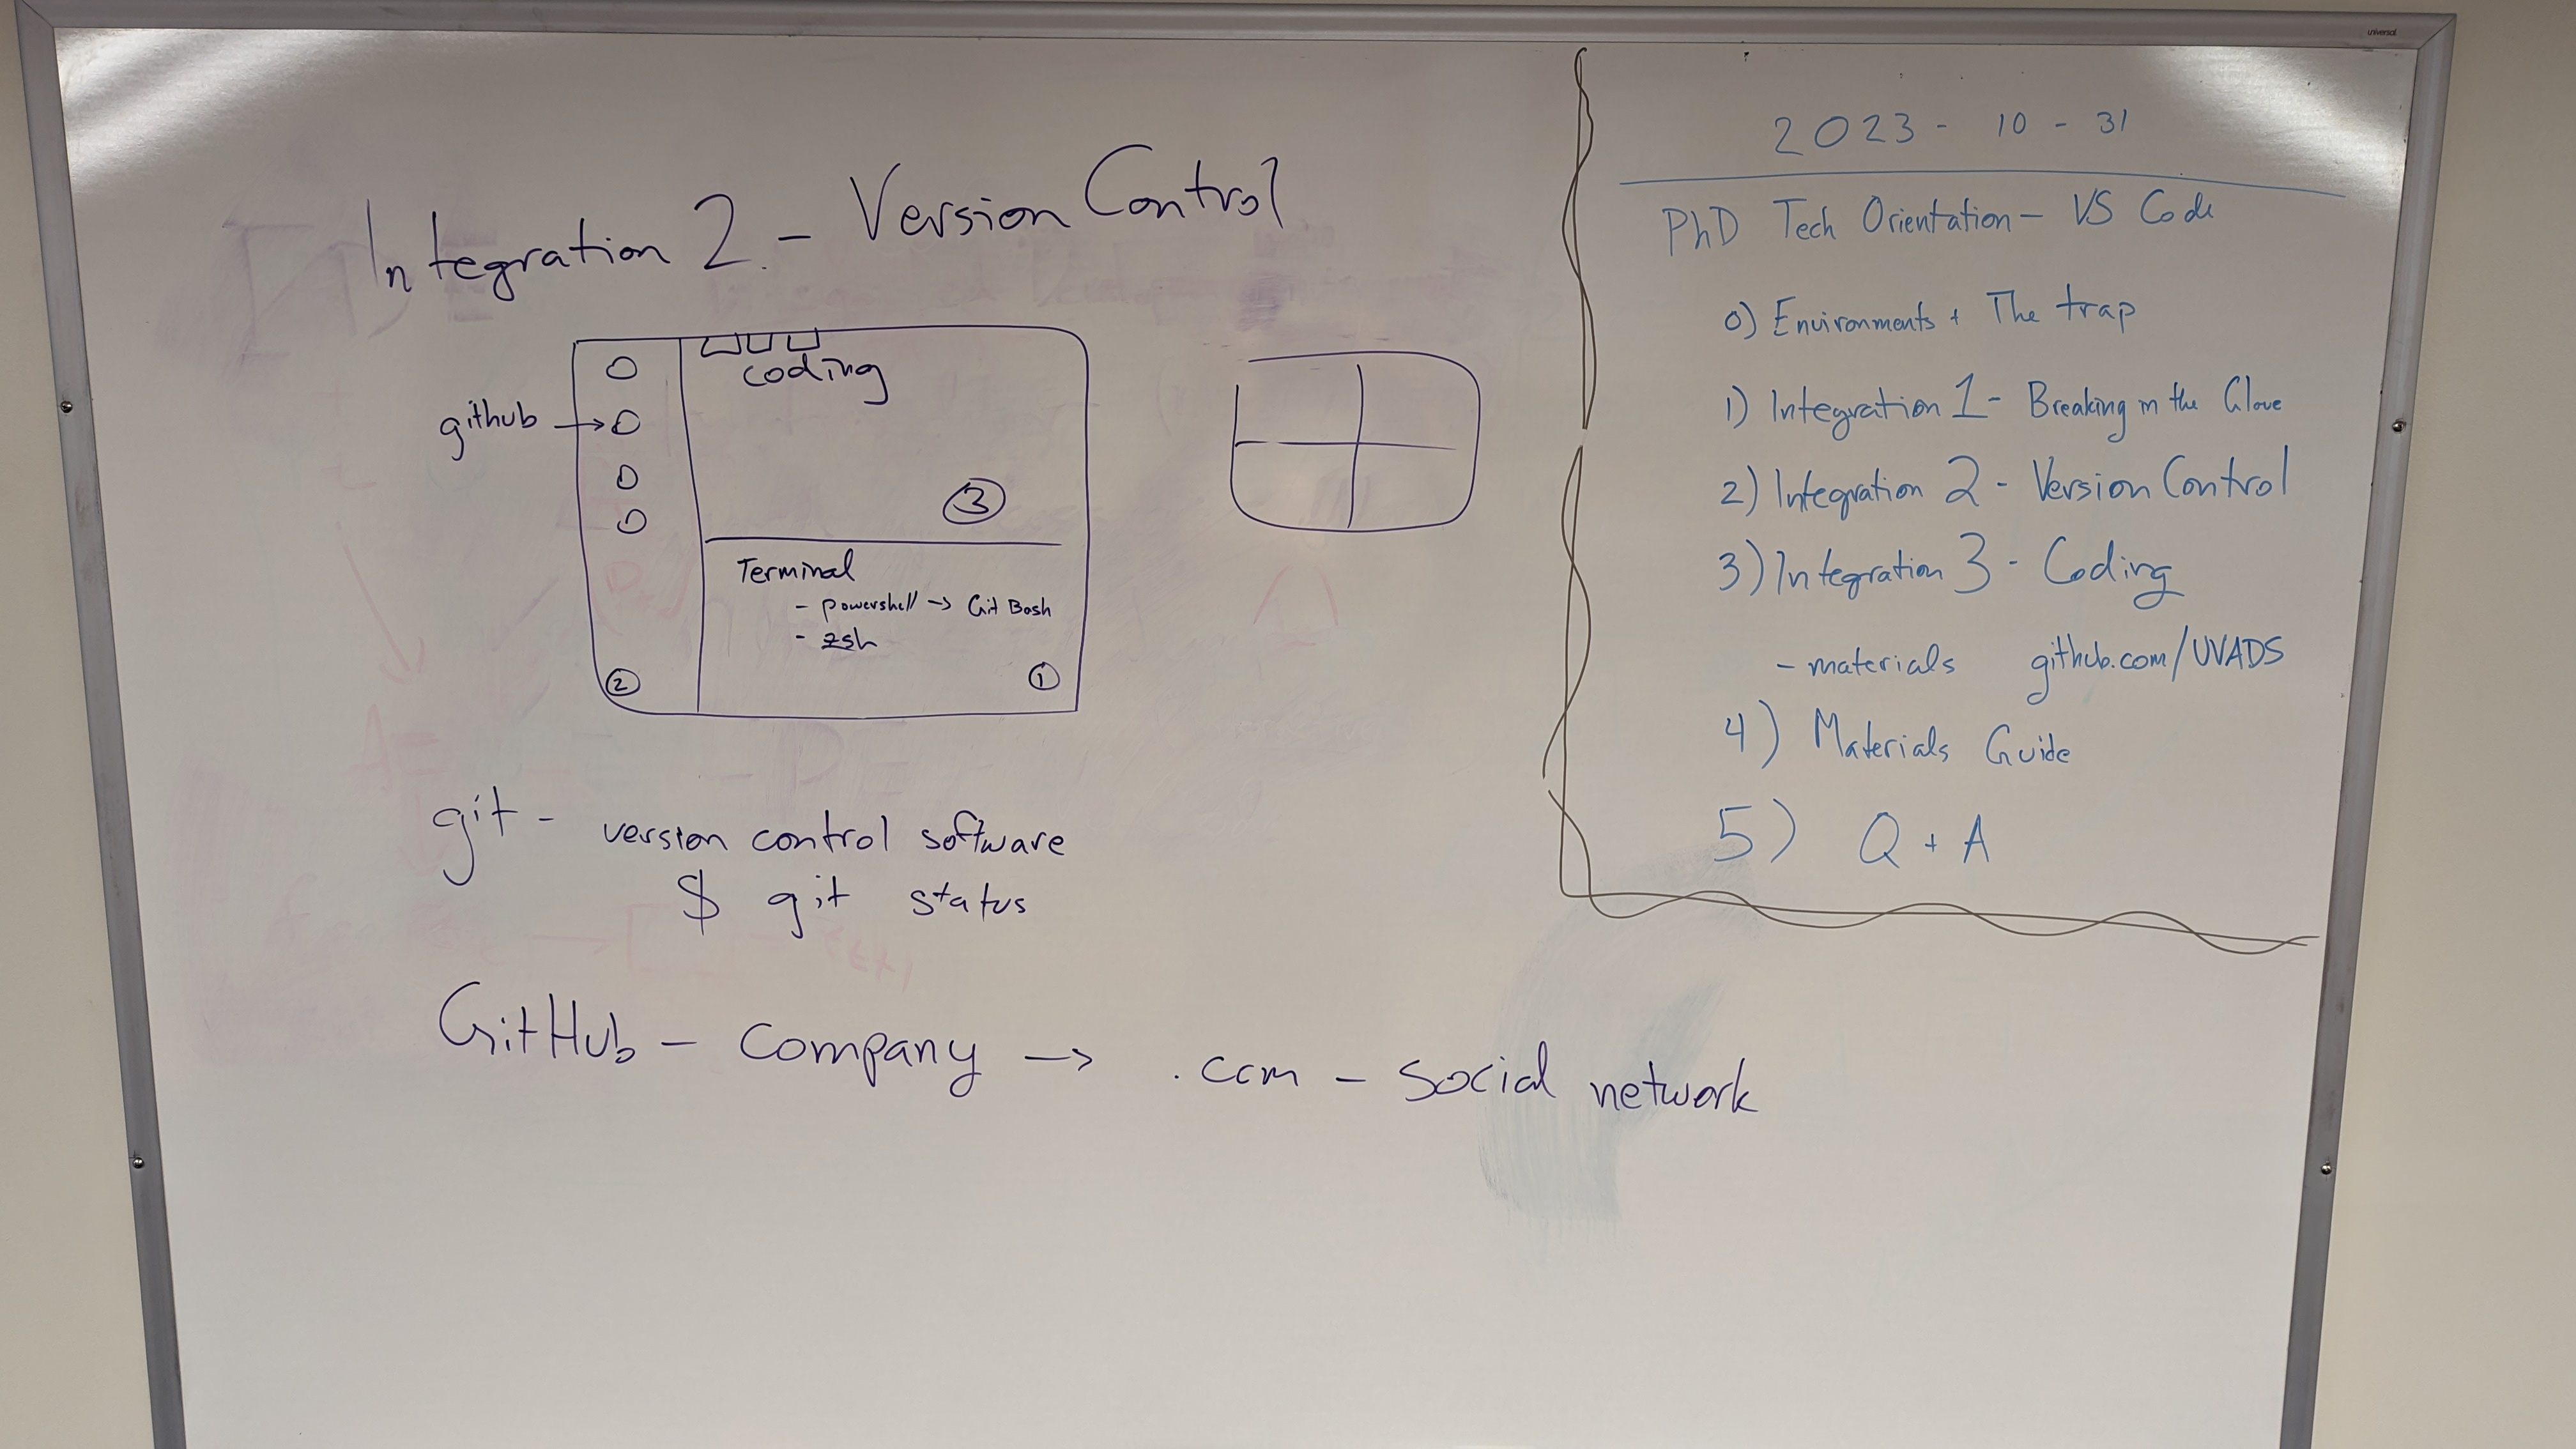 Integration 2 - Version Control
coding
github
3
Terminal
- powershell -> Git Bash
- zsh
2
1
git - version control software
$ git status
GitHub - Company -> .com - Social network
universal
2023 - 10 - 31
PhD Tech Orientation - VS Code
0) Environments + The trap
1) Integration 1 - Breaking in the Glove
2) Integration 2 - Version Control
3) Integration 3 - Coding
- materials github.com/UVADS
4) Materials Guide
5) Q + A